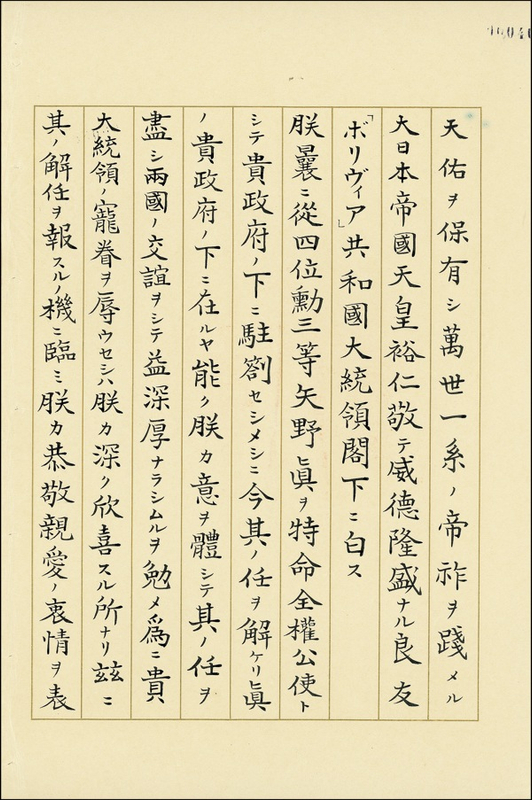 天佑ヲ保有シ萬世一系ノ帝祚ヲ踐メル
大日本帝國天皇裕仁敬テ威德隆盛ナル良友
「ボリヴィア」共和國大統領閣下ニ白ス
朕曩ニ從四位勳三等矢野眞ヲ特命全權公使ト
シテ貴政府ノ下ニ駐劄セシメシニ今其ノ任ヲ解ケリ眞
ノ貴政府ノ下ニ在ルヤ能ク朕カ意ヲ體シテ其ノ任ヲ
盡シ兩國ノ交誼ヲシテ益深厚ナラシムルヲ勉メ爲ニ貴
大統領ノ寵眷ヲ辱ウセシハ朕カ深ク欣喜スル所ナリ茲ニ
其ノ解任ヲ報スルノ機ニ臨ミ朕カ恭敬親愛ノ衷情ヲ表